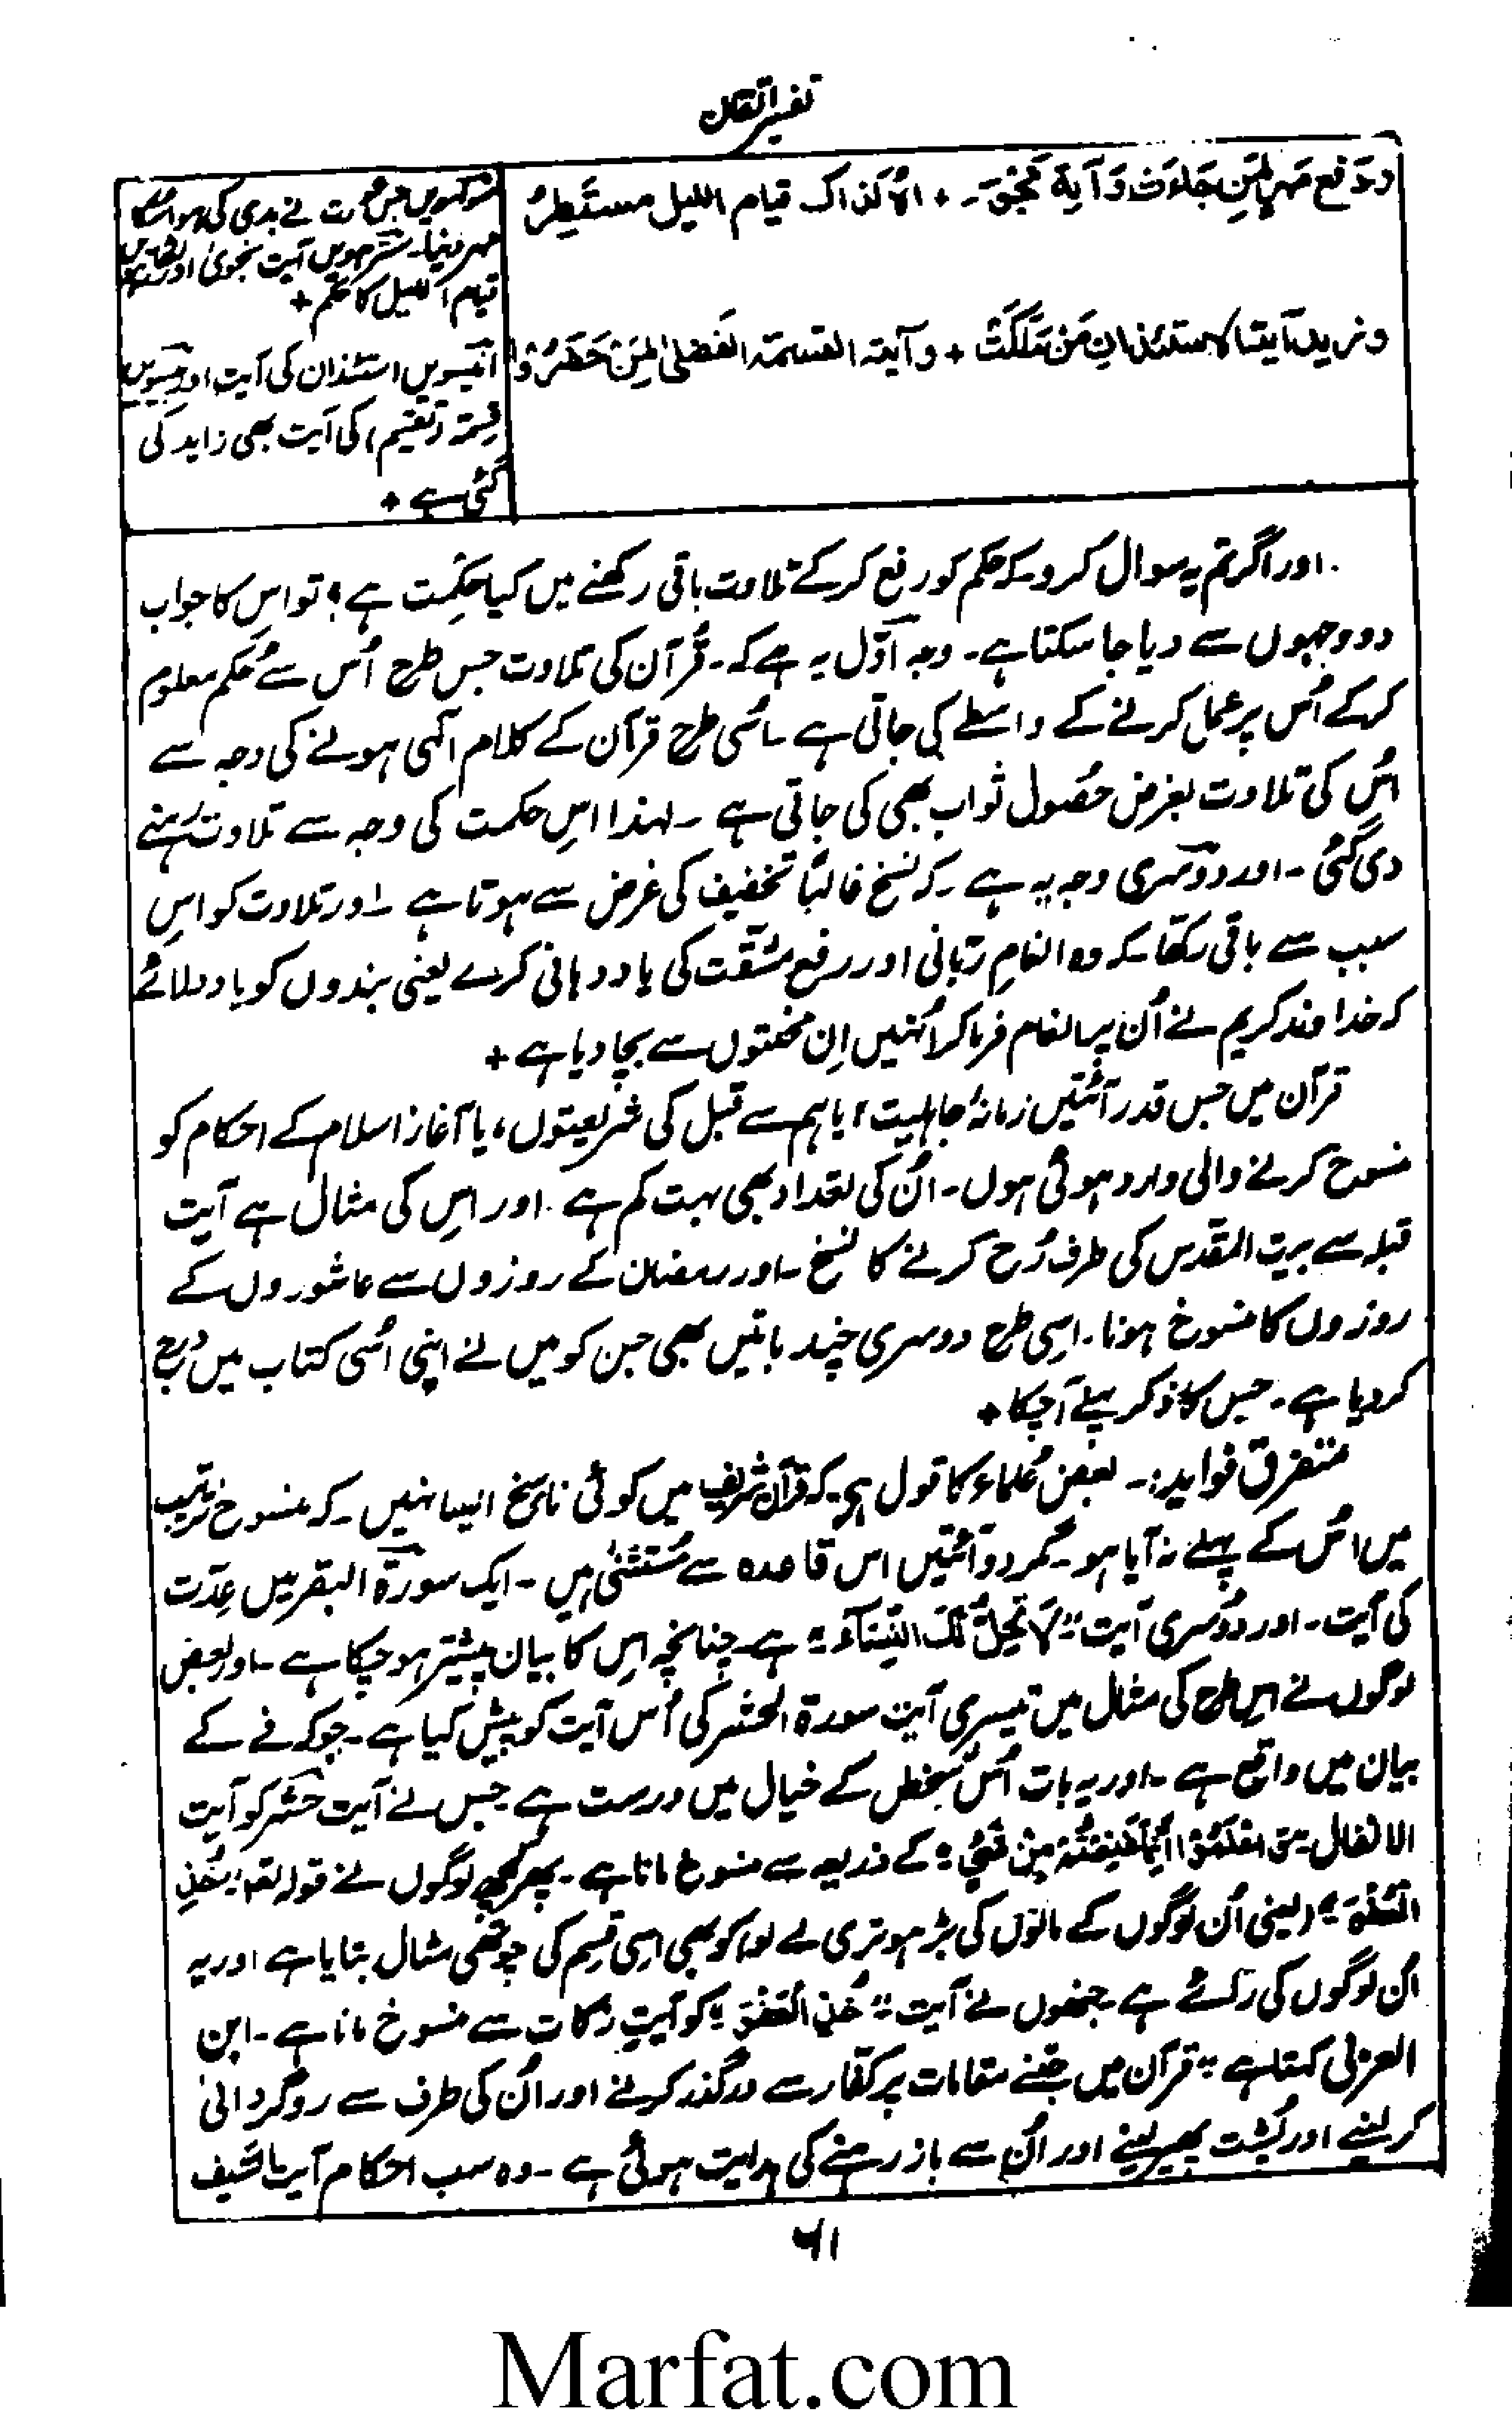 تفسیر اتقان
ودَفع مَهرٍ لِمَن جَاءَت وَآیة نَجْوٰ۔ + اکذاک قیام اللیل مستَطِرُ
سولہویں جس عورت نے بدی کی ہو اسکا
مہر دینا۔ سترہویں آیت نجویٰ اور
قیام اللیل کا حکم +
وزید آیتا لاستئذان مَن مَلَکَتْ + وآیتہ القسمتہ الفَضلیٰ لِمَن حَضَرُوا
انیسویں استئذان کی آیت اور بیسویں
قِسمۃ (تقسیم) کی آیت بھی زاید کی
گئی ہے +
اور اگر تم یہ سوال کرو۔ کہ حکم کو رفع کر کے تلاوت باقی رکھنے میں کیا حِکمت ہے؟ تو اس کا جواب
دو وجہوں سے دیا جا سکتا ہے۔ وجہ اَوّل یہ ہے کہ۔ قُرآن کی تلاوت جس طرح اُس سے حُکم معلوم
کر کے اُس پر عمل کرنے کے واسطے کی جاتی ہے۔ اُسی طرح قرآن کے کلام الٰہی ہونے کی وجہ سے
اُس کی تلاوت بغرض حُصول ثواب بھی کی جاتی ہے۔ لہذا اس حکمت کی وجہ سے تلاوت رہنے
دی گئی۔ اور دوسری وجہ یہ ہے۔ کہ نسخ غالبًا تخفیف کی غرض سے ہوتا ہے۔ اور تلاوت کو اس
سبب سے باقی رکھا۔ کہ وہ انعامِ ربّانی اور رفع مشقّت کی یاد دہانی کرے یعنی بندوں کو یاد دلائے
کہ خداوند کریم نے اُن پر انعام فرما کر اُنہیں اِن محنتوں سے بچا دیا ہے +
قرآن میں جس قدر آئتیں زمانۂ جاہلیت، یا ہم سے قبل کی شریعتوں، یا آغاز اسلام کے احکام کو
منسوخ کرنے والی وارد ہوئی ہوں۔ اُن کی تعداد بھی بہت کم ہے۔ اور اس کی مثال ہے آیت
قبلہ سے بیت المقدس کی طرف رُخ کرنے کا نسخ۔ اور رمضان کے روزوں سے عاشوروں کے
روزوں کا منسوخ ہونا۔ اِسی طرح دوسری چند باتیں بھی جن کو میں نے اپنی اُسی کتاب میں درج
کر دیا ہے۔ جس کا ذکر پہلے آ چکا +
متفرق فواید:۔ بعض عُلماء کا قول ہی۔ کہ قرآن شریف میں کوئی ناسخ ایسا نہیں۔ کہ منسوخ ترتیب
میں اس کے پہلے نہ آیا ہو۔ مگر دو آئتیں اس قاعدہ سے مُستثنیٰ ہیں۔ ایک سورۃ البقر میں عِدّت
کی آیت۔ اور دوسری آیت "لَا تَحِلُّ لَکَ النِّسَآءُ" ہے۔ چنانچہ اس کا بیان پیشتر ہو چکا ہے۔ اور بعض
لوگوں نے اس طرح کی مثال میں تیسری آیت سورۃ الحشر کی اُس آیت کو پیش کیا ہے۔ جو کہ فے کے
بیان میں واقع ہے۔ اور یہ بات اُس شخص کے خیال میں درست ہے جس نے آیت حشر کو آیت
الانفال۔ وَاعْلَمُوْا اَنَّمَا غَنِمْتُمْ مِنْ شَیْءٍ" کے ذریعہ سے منسوخ مانا ہے۔ پھر کچھ لوگوں نے قولہ تعہ "خُذِ
الْعَفْوَ" (یعنی اُن لوگوں کے مالوں کی بڑھوتری لے لو) کو بھی اِسی قسم کی چوتھی مثال بتایا ہے اور یہ
اُن لوگوں کی رائے ہے۔ جنھوں نے آیت "خُذِ الْعَفْوَ" کو آیتِ زکات سے منسوخ مانا ہے۔ ابن
العربی کہتا ہے "قرآن میں جتنے مقامات پر کفّار سے درگذر کرنے اور اُن کی طرف سے روگردانی
کر لینے اور پُشت پھیر لینے اور اُن سے باز رہنے کی ہدایت ہوئی ہے۔ وہ سب احکام آیت السَّیف
۶۱
Marfat.com